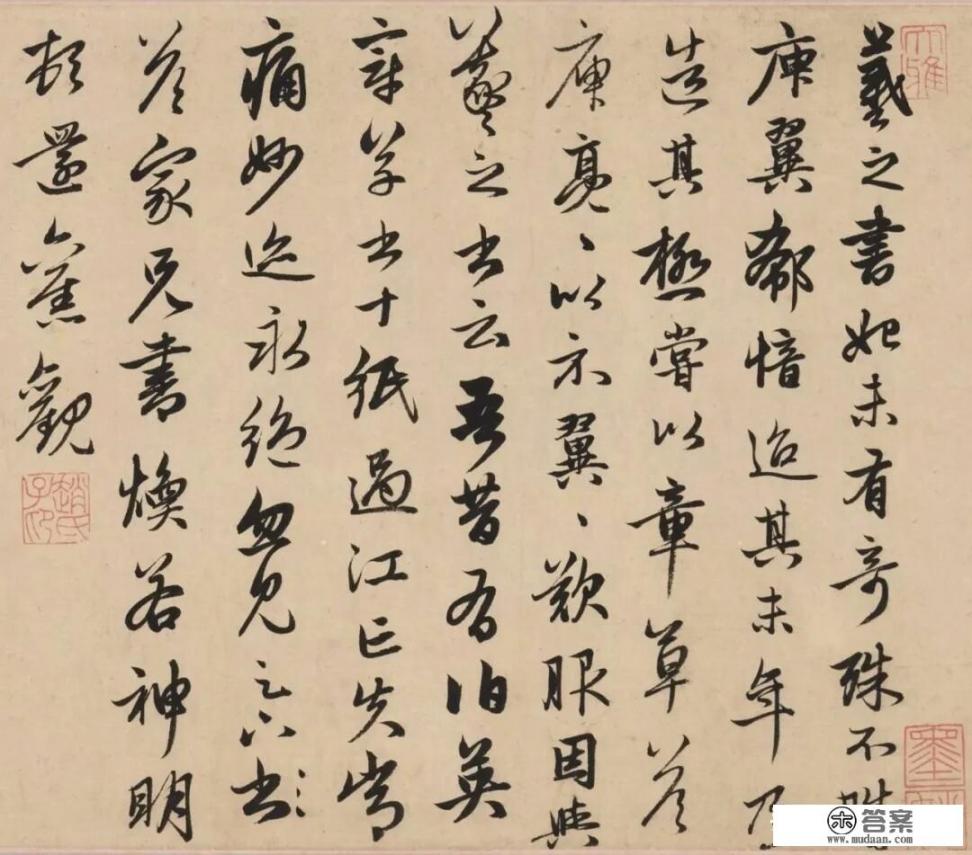 羲之書始未有奇殊不
庾翼郗愔迨其末年乃
造其極嘗以章草答
庾亮、以示翼、歎服因與
羲之書云吾昔有伯英
章草書十紙過江亡失常
痛妙迹永絕忽見足下書
答家兄書煥若神明
頓還舊觀
趙氏子昂
大雅
答案
www.mudaan.com